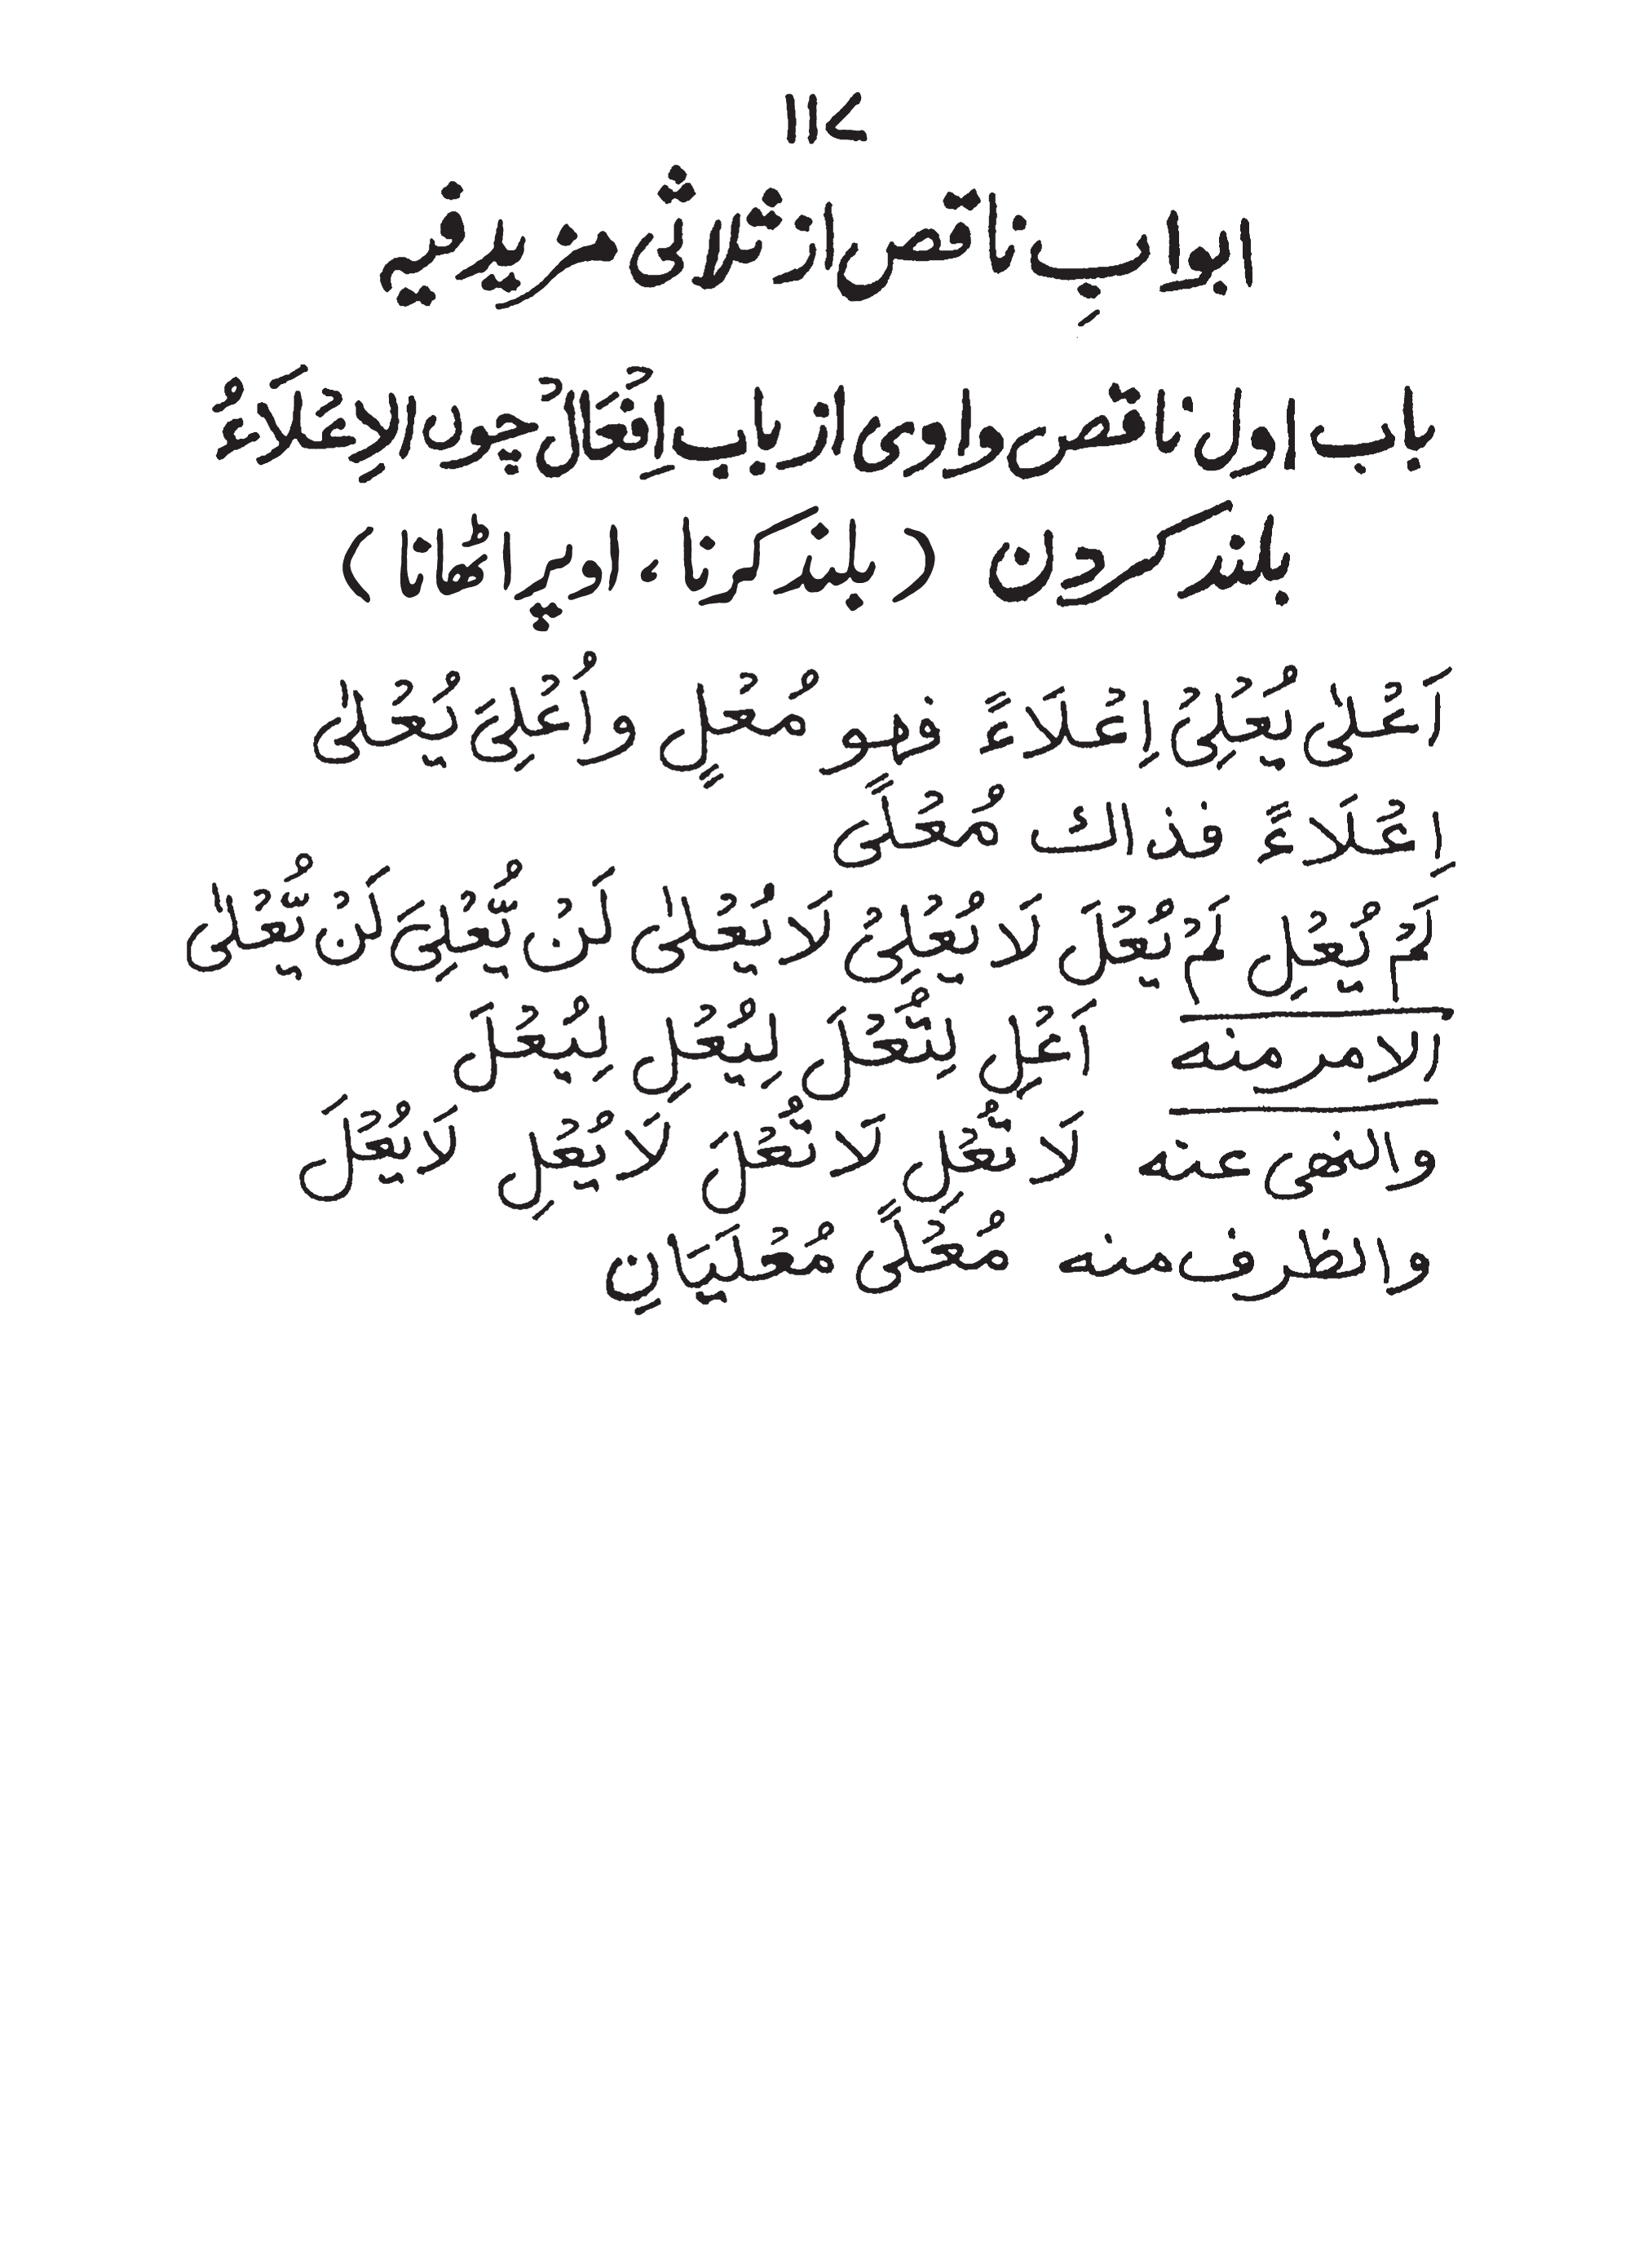 ۱۱۷
ابوابِ ناقص از ثلاثی مزید فیہ
باب اول ناقص واوی از باب اِفْعَالْ چوں الاِعْلَاءُ
بلند کردن (بلند کرنا، اوپر اٹھانا)
اَعْلیٰ یُعْلِیْ اِعْلَاءً فهو مُعْلٍ واُعْلِیَ یُعْلیٰ
اِعْلَاءً فذاك مُعْلًی
لَمْ یُعْلِ لَمْ یُعْلَ لَا یُعْلِیْ لَا یُعْلیٰ لَنْ یُّعْلِیَ لَنْ یُّعْلیٰ
الامر منه اَعْلِ لِتُعْلَ لِیُعْلِ لِیُعْلَ
والنهی عنه لَا تُعْلِ لَا تُعْلَ لَا یُعْلِ لَا یُعْلَ
والظرف منه مُعْلًی مُعْلَیَانِ